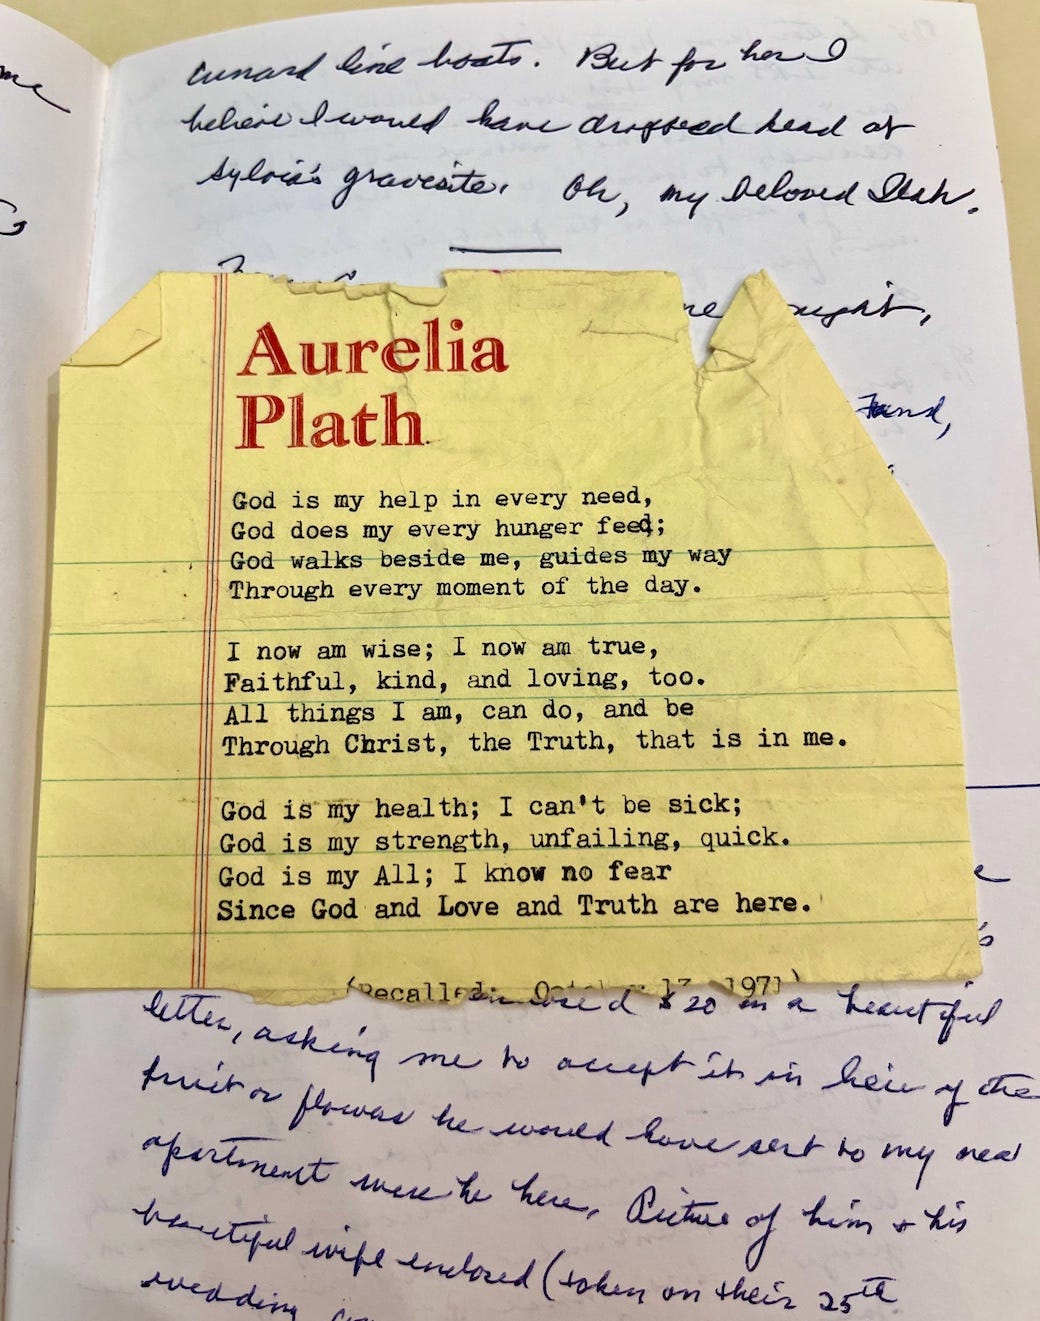 me
cunard line boats. But for her I
believe I would have dropped dead at
Sylvia's gravesite. Oh, my beloved Leah.
ught,
Aurelia
Plath
and,
God is my help in every need,
God does my every hunger feed;
God walks beside me, guides my way
Through every moment of the day.
I now am wise; I now am true,
Faithful, kind, and loving, too.
All things I am, can do, and be
Through Christ, the Truth, that is in me.
God is my health; I can't be sick;
God is my strength, unfailing, quick.
God is my All; I know no fear
Since God and Love and Truth are here.
(Recalled: October 17, 1971)
$20 in a beautiful
letter, asking me to accept it in lieu of the
fruit or flowers he would have sent to my new
apartment were he here. Picture of him & his
beautiful wife enclosed (taken on their 25th
wedding